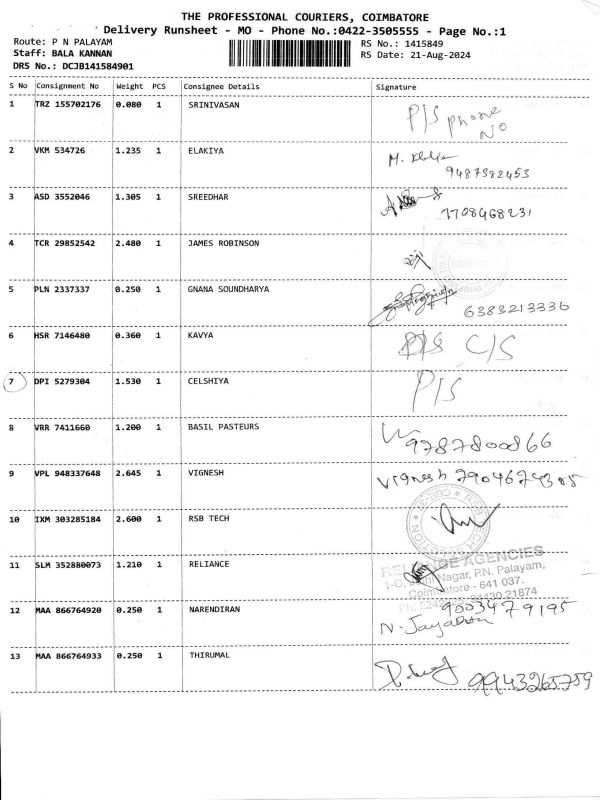 THE PROFESSIONAL COURIERS, COIMBATORE
Delivery Runsheet - MO - Phone No.:0422-3505555 - Page No.:1
Route: P N PALAYAM
RS No.: 1415849
Staff: BALA KANNAN
RS Date: 21-Aug-2024
DRS No.: DCJB141584901
S No Consignment No Weight PCS Consignee Details Signature
1 TRZ 155702176 0.080 1 SRINIVASAN
P/S phone
NO
2 VKM 534726 1.235 1 ELAKIYA
M.
9487382453
3 ASD 3552046 1.305 1 SREEDHAR
7708468231
4 TCR 29852542 2.480 1 JAMES ROBINSON
5 PLN 2337337 0.250 1 GNANA SOUNDHARYA
6383213336
6 HSR 7146480 0.360 1 KAVYA
P/S C/S
7 DPI 5279304 1.530 1 CELSHIYA
P/S
8 VRR 7411660 1.200 1 BASIL PASTEURS
9787800866
9 VPL 948337648 2.645 1 VIGNESH
Vignesh 7904674305
10 IXM 303285184 2.600 1 RSB TECH
11 SLM 352880073 1.210 1 RELIANCE
RELIANCE AGENCIES
Nagar, P.N. Palayam,
Coimbatore - 641 037.
94430 21874
12 MAA 866764920 0.250 1 NARENDIRAN
9003479195
N.
13 MAA 866764933 0.250 1 THIRUMAL
9943265759